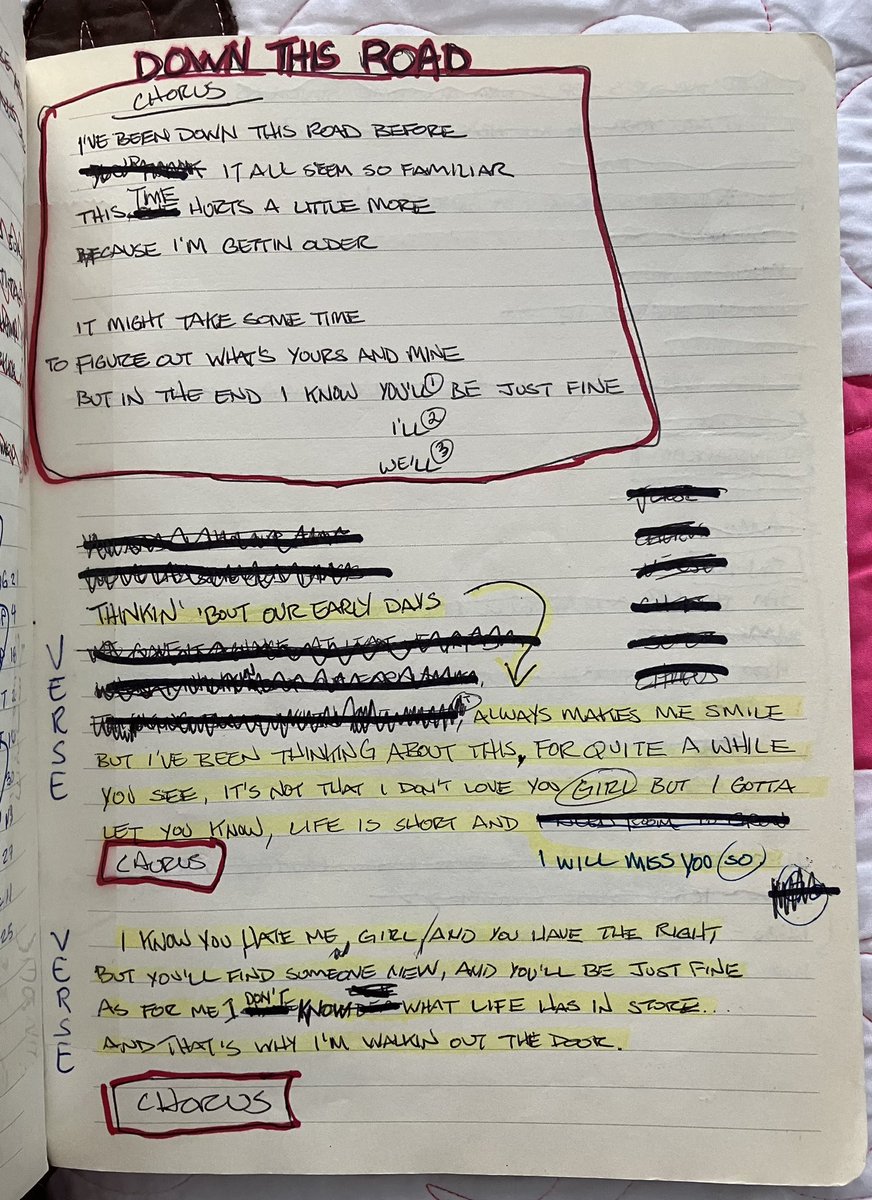 DOWN THIS ROAD
CHORUS
I'VE BEEN DOWN THIS ROAD BEFORE
IT ALL SEEM SO FAMILIAR
THIS TIME HURTS A LITTLE MORE
BECAUSE I'M GETTIN OLDER
IT MIGHT TAKE SOME TIME
TO FIGURE OUT WHAT'S YOURS AND MINE
BUT IN THE END I KNOW YOU'LL ① BE JUST FINE
I'LL ②
WE'LL ③
THINKIN' 'BOUT OUR EARLY DAYS
VERSE
ALWAYS MAKES ME SMILE
BUT I'VE BEEN THINKING ABOUT THIS, FOR QUITE A WHILE
YOU SEE, IT'S NOT THAT I DON'T LOVE YOU GIRL BUT I GOTTA
LET YOU KNOW, LIFE IS SHORT AND I NEED ROOM TO GROW
I WILL MISS YOU SO
CHORUS
VERSE
I KNOW YOU HATE ME, GIRL / AND YOU HAVE THE RIGHT
BUT YOU'LL FIND SOMEONE NEW, AND YOU'LL BE JUST FINE
AS FOR ME I DON'T KNOW WHAT LIFE HAS IN STORE....
AND THAT'S WHY I'M WALKIN OUT THE DOOR.
CHORUS